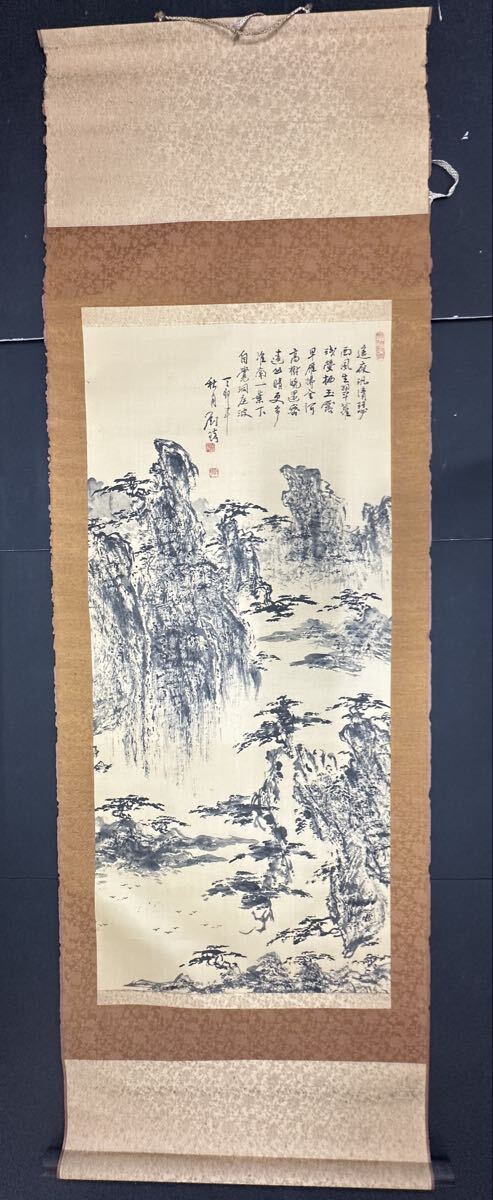 遙夜汎清瑟
西風生翠蘿
残螢栖玉露
早雁拂金河
高樹曉還密
遠山晴更多
淮南一葉下
自覺洞庭波
丁卯年
秋月 劉